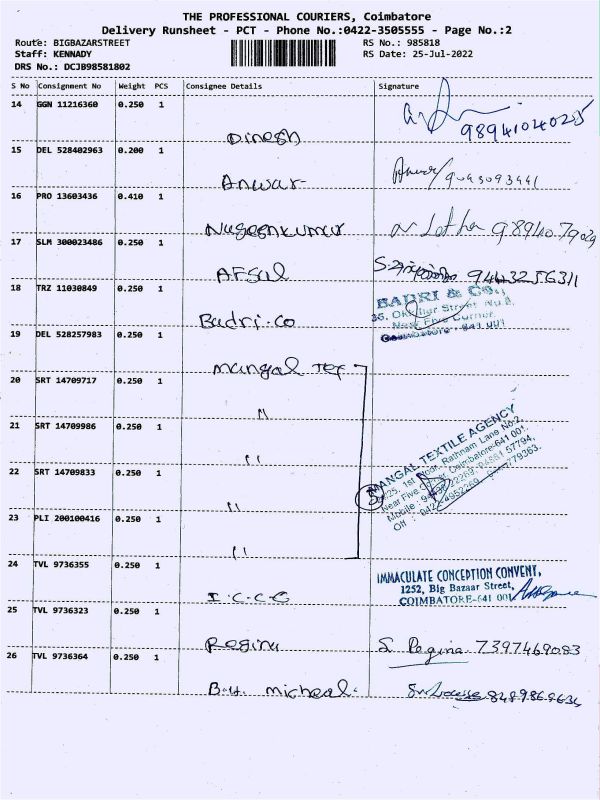 THE PROFESSIONAL COURIERS, Coimbatore
Delivery Runsheet - PCT - Phone No.:0422-3505555 - Page No.:2
Route: BIGBAZARSTREET
RS No.: 985818
Staff: KENNADY
RS Date: 25-Jul-2022
DRS No.: DCJB98581802
S No Consignment No Weight PCS Consignee Details Signature
14 GGN 11216360 0.250 1
Dinesh 98941040205
15 DEL 528402963 0.200 1
Anwar
16 PRO 13603436 0.410 1
Nageenkumar
17 SLM 300023486 0.250 1
AFSal 94432 56311
18 TRZ 11030849 0.250 1
Badri.co
BADRI & CO.,
19 DEL 528257983 0.250 1
Coimbatore - 641 001
Mangal Tex
20 SRT 14709717 0.250 1
"
21 SRT 14709986 0.250 1
"
22 SRT 14709833 0.250 1
"
23 PLI 200100416 0.250 1
"
MANGAL TEXTILE AGENCY
1st Floor, Rathnam Lane No:2,
Near Five Corner, Coimbatore-641 001.
24 TVL 9736355 0.250 1
I.C.C.C
IMMACULATE CONCEPTION CONVENT,
1252, Big Bazaar Street,
COIMBATORE-641 001
25 TVL 9736323 0.250 1
Regina S. Regina 7397469083
26 TVL 9736364 0.250 1
B.H. micheal.